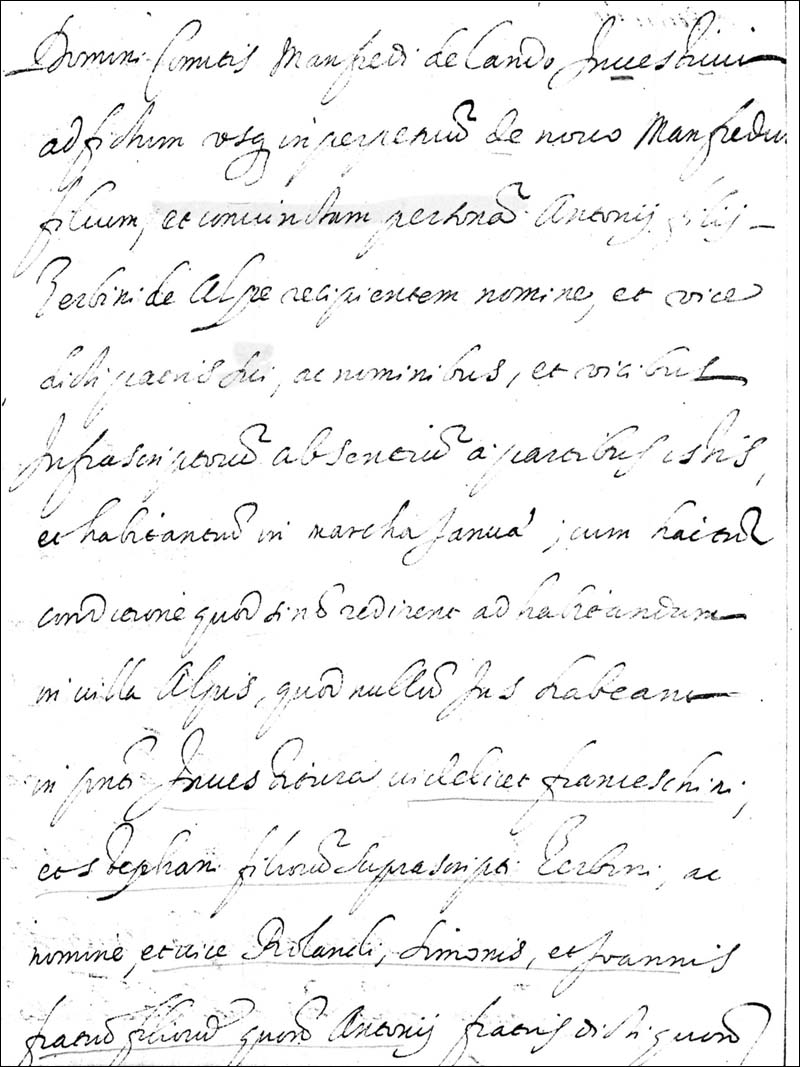 Domini Comitis Manfredi de Lando Jnuestiui
ad fictum usq in perpetuū de nouo Manfredum
filium, et coniunctam personā Antonij filij
Zerbini de Alpe recipientem nomine, et vice
dicti patris sui, ac nominibus, et vicibus
Jnfrascriptorū absentiū à partibus istis,
et habitantiū in marcha Januæ; cum hac tñ
conditione quod si nō redirent ad habitandum
in uilla Alpis, quod nullū Jus habeant
in pnti Jnuestitura uidelicet franceschini,
et stephani filiorū suprascripti Zerbini, ac
nomine, et uice Rolandi, Simonis, et Joannis
fratrū filiorū quonā Antonij fratris dicti quonā